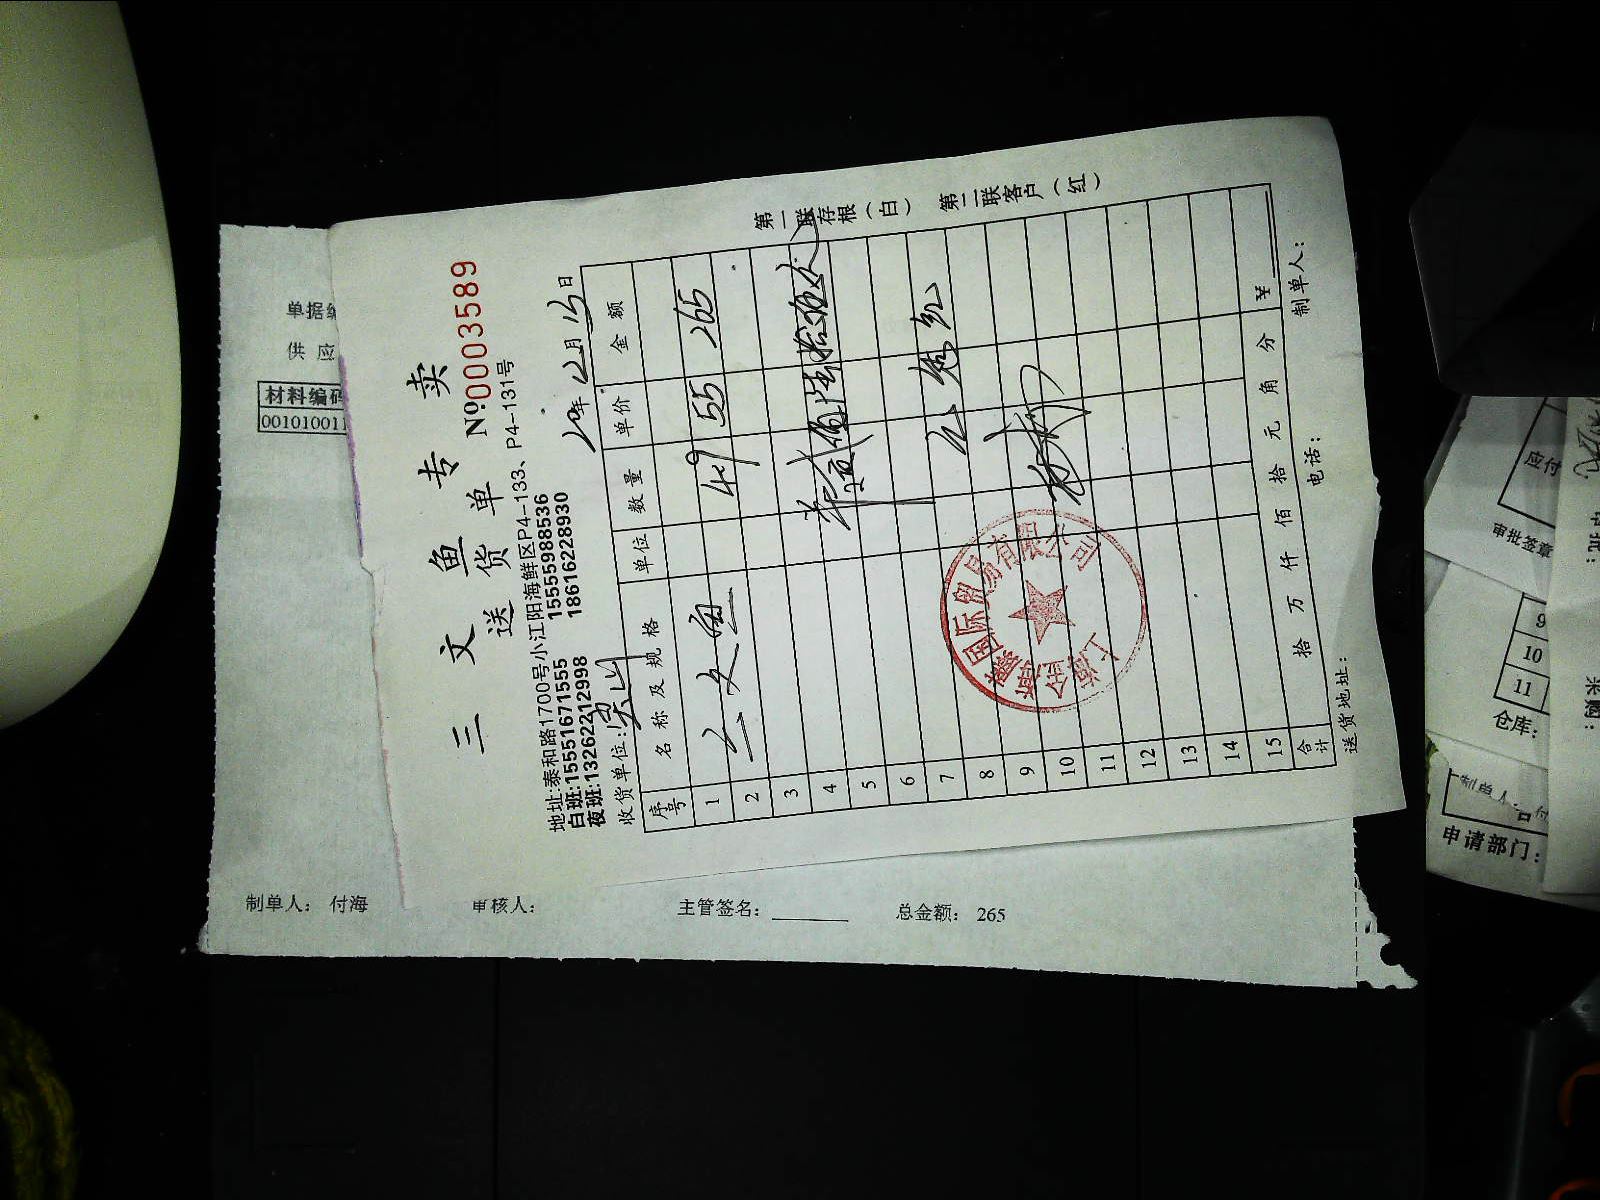 三文鱼专卖
送货单 №0003589
地址:泰和路1700号小江阳海鲜区P4-133、P4-131号
白班:15551671555 15555988536
夜班:13262212998 18616228930
收货单位:
年 月 日
序号 名称及规格 单位 数量 单价 金额
1 三文鱼 4.9 55 265
2
3
4
5
6
7
8
9
10
11
12
13
14
15
合计 拾 万 仟 佰 拾 元 角 分 ¥
送货地址: 电话: 制单人:
第一联存根(白) 第二联客户(红)
国际贸易有限公司
上海
单据编
供应
材料编码
001010011
制单人: 付海 审核人: 主管签名: 总金额: 265
应付
审批签章
9
10
11
仓库:
制单人:
申请部门:
采购: